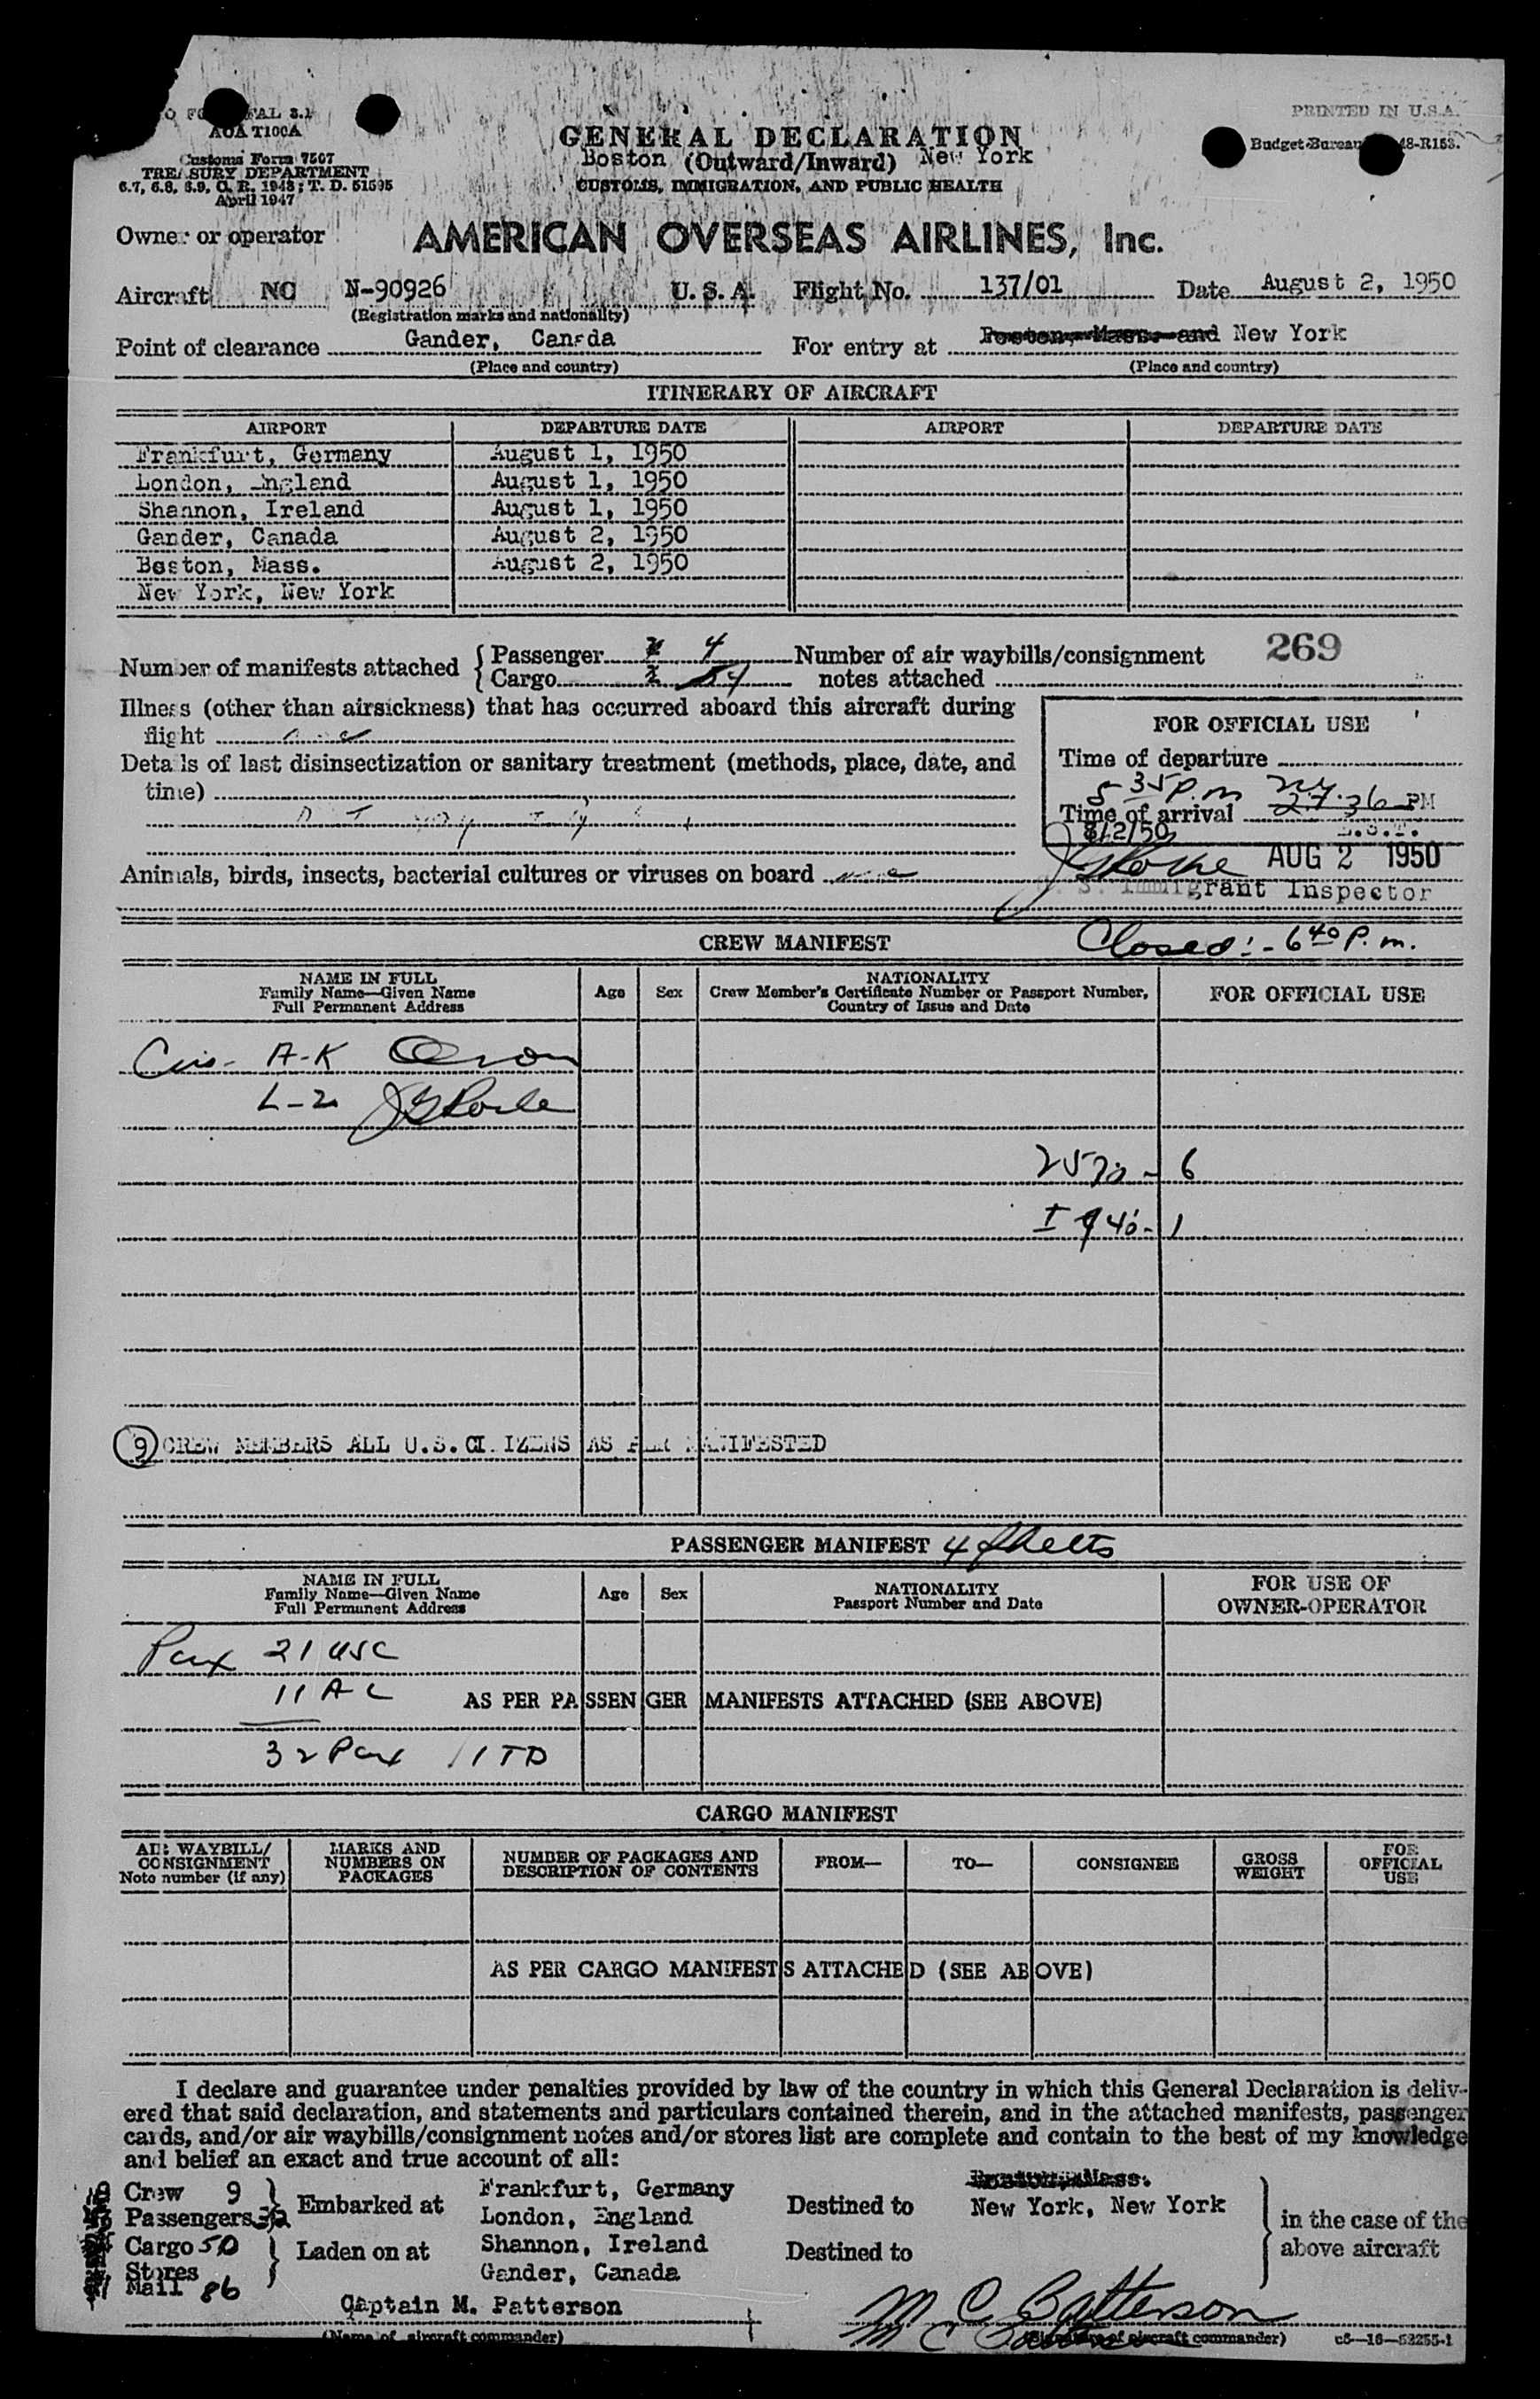 AOA T100A
PRINTED IN U.S.A.
Customs Form 7507
TREASURY DEPARTMENT
6.7, 6.8, 6.9, C. R. 1943; T. D. 51595
April 1947
Budget Bureau 48-R153.
GENERAL DECLARATION
Boston (Outward/Inward) New York
CUSTOMS, IMMIGRATION, AND PUBLIC HEALTH
Owner or operator AMERICAN OVERSEAS AIRLINES, Inc.
Aircraft NC N-90926 U. S. A. Flight No. 137/01 Date August 2, 1950
(Registration marks and nationality)
Point of clearance Gander, Canada For entry at Boston, Mass. and New York
(Place and country) (Place and country)
ITINERARY OF AIRCRAFT
AIRPORT DEPARTURE DATE AIRPORT DEPARTURE DATE
Frankfurt, Germany August 1, 1950
London, England August 1, 1950
Shannon, Ireland August 1, 1950
Gander, Canada August 2, 1950
Boston, Mass. August 2, 1950
New York, New York
Number of manifests attached { Passenger 4 Number of air waybills/consignment 269
Cargo 4 notes attached
Illness (other than airsickness) that has occurred aboard this aircraft during
flight
FOR OFFICIAL USE
Details of last disinsectization or sanitary treatment (methods, place, date, and
time)
Time of departure
5 35 p.m
Time of arrival 7.36 PM
8/2/50 E.S.T.
AUG 2 1950
Animals, birds, insects, bacterial cultures or viruses on board none
U. S. Immigrant Inspector
CREW MANIFEST Closed:- 6 40 P. m.
NAME IN FULL
Family Name—Given Name
Full Permanent Address
Age Sex
NATIONALITY
Crew Member's Certificate Number or Passport Number,
Country of Issue and Date
FOR OFFICIAL USE
A-K
L-2
- 6
- 1
9 CREW MEMBERS ALL U.S.CITIZENS AS PER MANIFESTED
PASSENGER MANIFEST 4 Sheets
NAME IN FULL
Family Name—Given Name
Full Permanent Address
Age Sex
NATIONALITY
Passport Number and Date
FOR USE OF
OWNER-OPERATOR
Pax 21 USC
11 A-L
AS PER PASSENGER MANIFESTS ATTACHED (SEE ABOVE)
32 Pax 1 ITD
CARGO MANIFEST
AIR WAYBILL/
CONSIGNMENT
Note number (if any)
MARKS AND
NUMBERS ON
PACKAGES
NUMBER OF PACKAGES AND
DESCRIPTION OF CONTENTS
FROM—
TO—
CONSIGNEE
GROSS
WEIGHT
FOR
OFFICIAL
USE
AS PER CARGO MANIFESTS ATTACHED (SEE ABOVE)
I declare and guarantee under penalties provided by law of the country in which this General Declaration is deliv-
ered that said declaration, and statements and particulars contained therein, and in the attached manifests, passenger
cards, and/or air waybills/consignment notes and/or stores list are complete and contain to the best of my knowledge
and belief an exact and true account of all:
Crew 9
Passengers 32
Embarked at
Frankfurt, Germany
London, England
Destined to
Boston, Mass.
New York, New York
in the case of the
above aircraft
Cargo 50
Stores
Mail 86
Laden on at
Shannon, Ireland
Gander, Canada
Destined to
Captain M. Patterson
M C Patterson
M C Patterson
(Name of aircraft commander) (Signature of aircraft commander) c6—16—52255-1